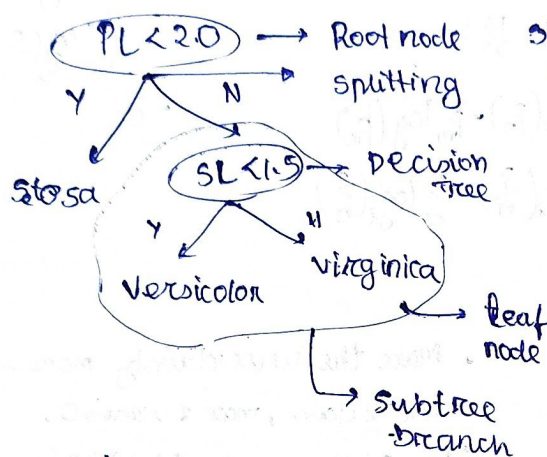 PL < 2.0 → Root node
Y N → splitting
SL < 1.5 → Decision
tree
Setosa
Y N
Versicolor virginica
→ Leaf
node
→ Subtree
-branch